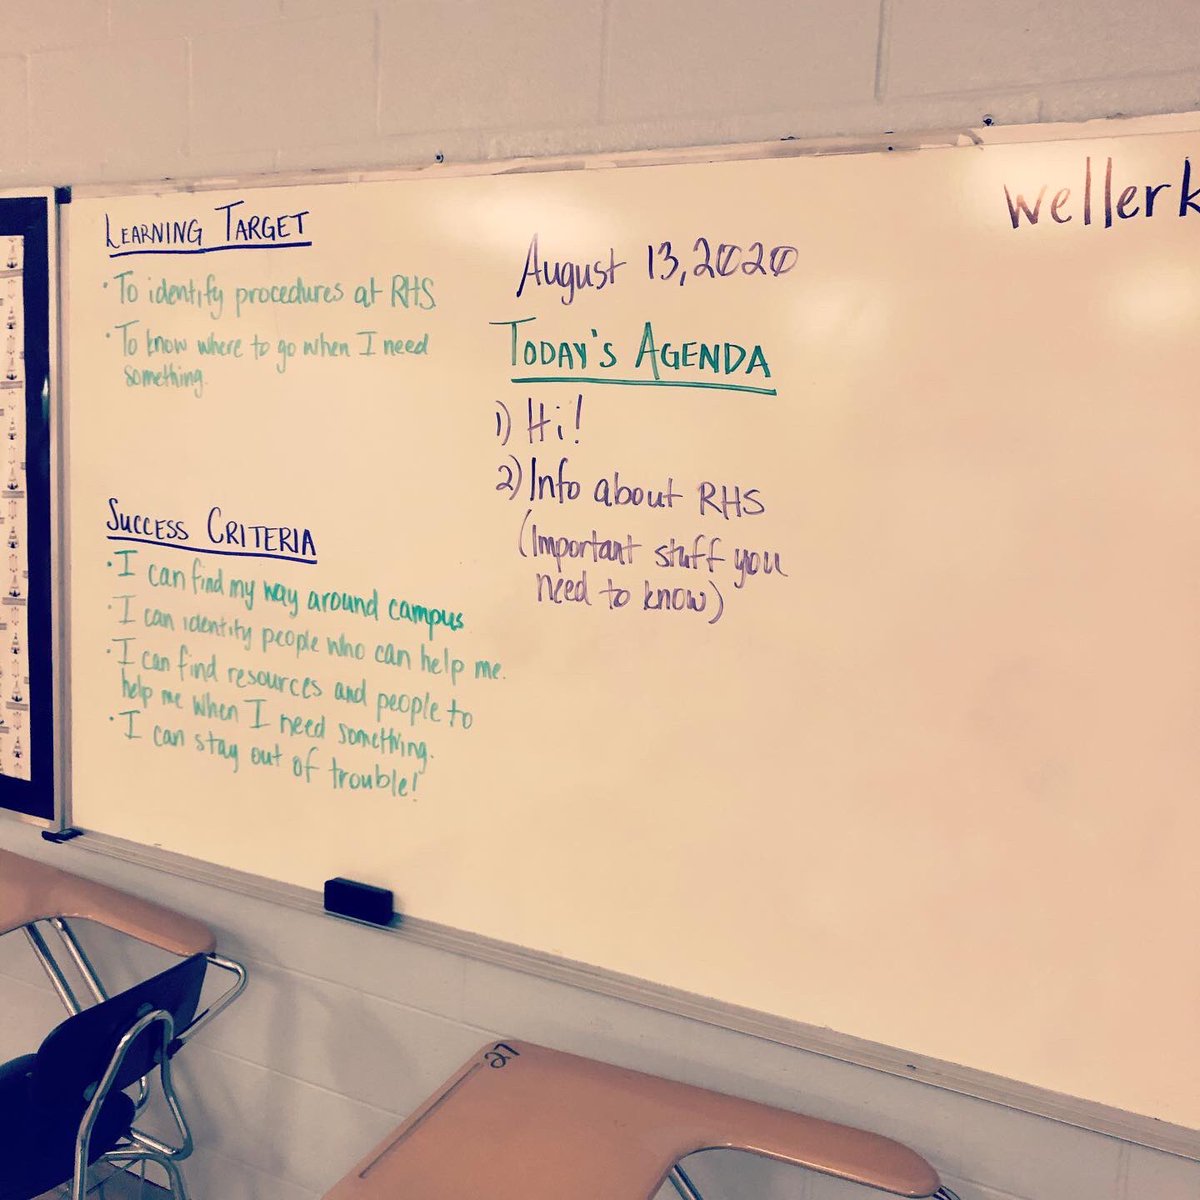 LEARNING TARGET
· To identify procedures at RHS
· To know where to go when I need
something.
SUCCESS CRITERIA
· I can find my way around campus
· I can identify people who can help me.
· I can find resources and people to
help me when I need something.
· I can stay out of trouble!
August 13, 2020
TODAY'S AGENDA
1) Hi!
2) Info about RHS
(Important stuff you
need to know)
wellerk
27